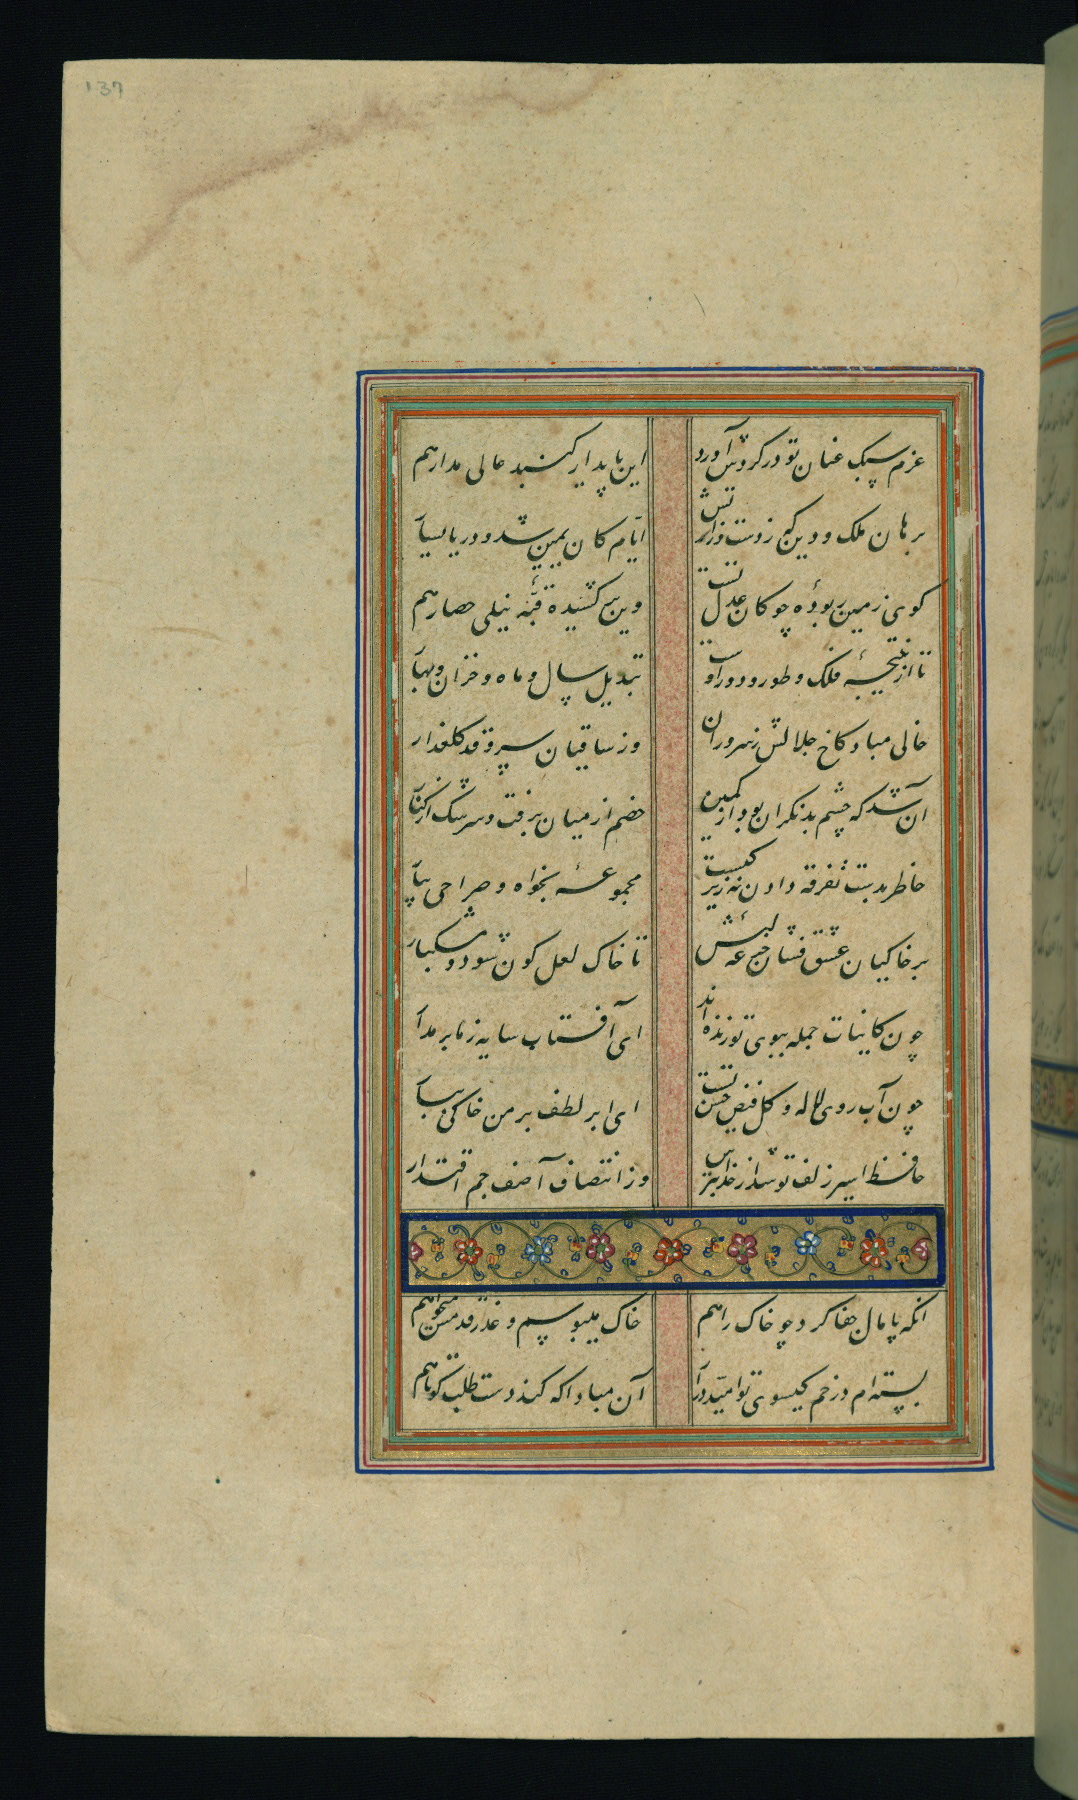 137
عزم سبک عنان تو در گردش آورد
این پایدار گنبد عالی مدار هم
برهان ملک و دین که ز دست وزارتش
ایام کان یمین شد و دریا یسار
گوی زمین ربوده چوکان عدل تست
وین برکشیده قبّه نیلی حصار هم
تا از نتیجهٔ فلک و طور و دور اوست
تبدیل سال و ماه و خزان و بهار
خالی مباد کاخ جلالش ز سروران
وز ساقیان سرو قد گلعذار
آن شد که چشم بد نگران بود از کمین
خصم از میان برفت و سرشک از کنار
خاطر بدست تفرقه دادن نه زیرکیست
مجموعهٔ بخواه و صراحی بیار
بر خاکیان عشق فشان جرعهٔ لبش
تا خاک لعل گون شود و مشکبار
چون کاینات جمله ببوی تو زنده‌اند
ای آفتاب سایه ز ما بر مدار
چون آب روی لاله و گل فیض حسن تست
ای ابر لطف بر من خاکی ببار
حافظ اسیر زلف تو شد از خدا بترس
وز انتصاف آصف جم اقتدار
آنکه پامال جفا کرد چو خاک راهم
خاک میبوسم و عذر قدمش میخواهم
بسته‌ام در خم گیسوی تو امید دراز
آن مبادا که کند دست طلب کوتاهم